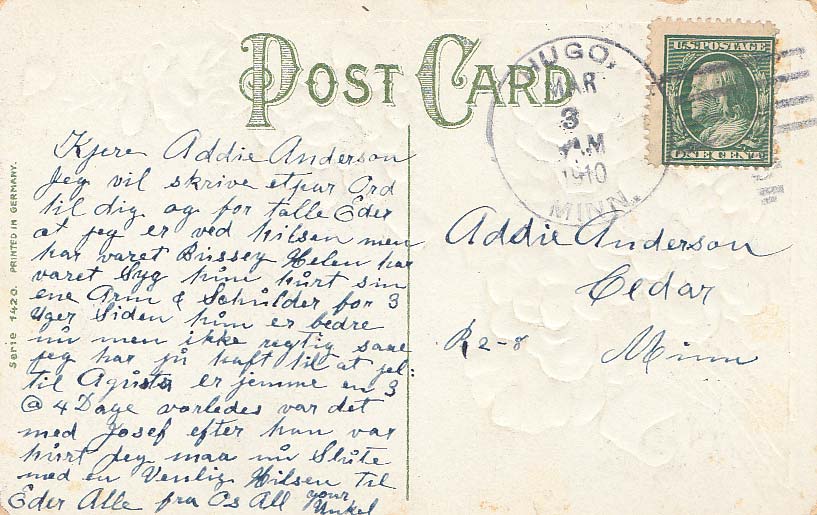 POST CARD
HUGO,
MAR
3
AM
1910
MINN.
U.S. POSTAGE
ONE CENT
Serie 1420. PRINTED IN GERMANY.
Kjere Addie Anderson
Jeg vil skrive etpar Ord
til dig og for talle Eder
at jeg er ved hilsen men
har varet Bissey Helen har
varet Syg hun hurt sin
ene Arm & Schulder for 3
Uger Siden hun er bedre
nu men ikke regtig saae
jeg har ju haft til at jel:
til Agusta er jemme en 3
@ 4 Dage vorledes var det
med Josef efter han var
hurt Jeg maa nu Slute
med en Venlig Hilsen til
Eder Alle fra Os All your
Unkel
Addie Anderson
Cedar
R 2-8
Minn